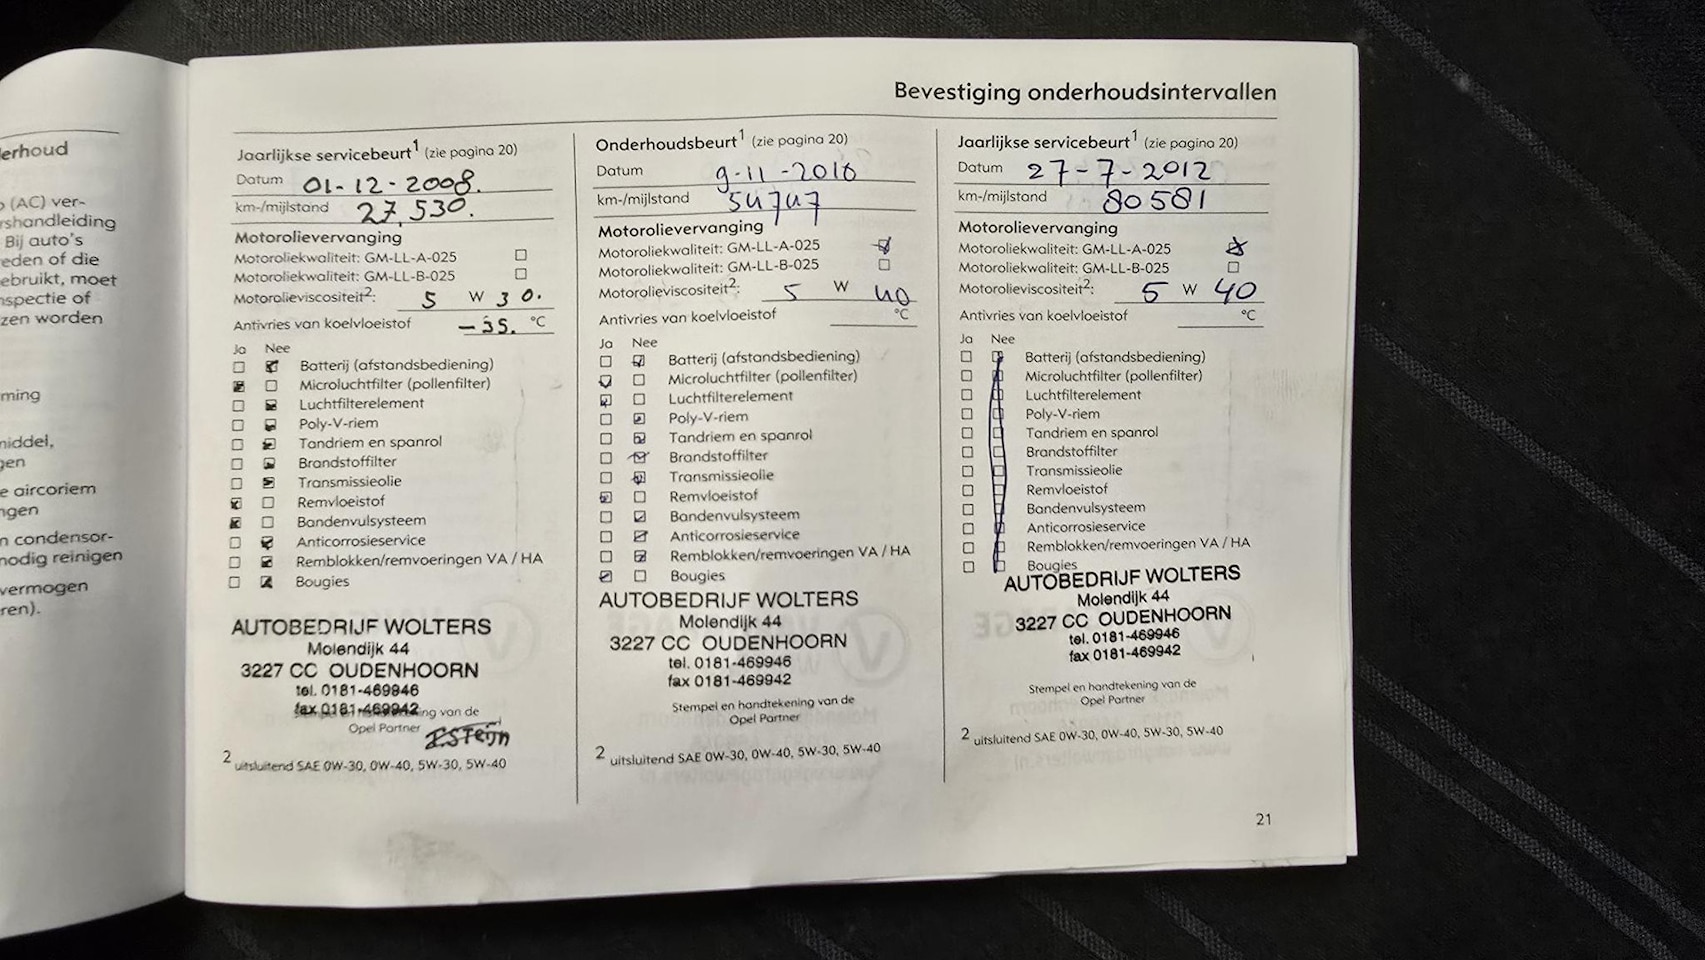 erhoud
(AC) ver-
rshandleiding
Bij auto's
eden of die
ebruikt, moet
nspectie of
zen worden
ming
middel,
gen
e aircoriem
ngen
n condensor-
nodig reinigen
vermogen
ren).
Bevestiging onderhoudsintervallen
Jaarlijkse servicebeurt1 (zie pagina 20)
Datum 01-12-2008.
km-/mijlstand 27.530.
Motorolievervanging
Motoroliekwaliteit: GM-LL-A-025
Motoroliekwaliteit: GM-LL-B-025
Motorolieviscositeit2: 5 W 30.
Antivries van koelvloeistof -35. °C
Ja Nee
Batterij (afstandsbediening)
Microluchtfilter (pollenfilter)
Luchtfilterelement
Poly-V-riem
Tandriem en spanrol
Brandstoffilter
Transmissieolie
Remvloeistof
Bandenvulsysteem
Anticorrosieservice
Remblokken/remvoeringen VA / HA
Bougies
AUTOBEDRIJF WOLTERS
Molendijk 44
3227 CC OUDENHOORN
tel. 0181-469946
fax 0181-469942
ing van de
Opel Partner
2 uitsluitend SAE 0W-30, 0W-40, 5W-30, 5W-40
Onderhoudsbeurt1 (zie pagina 20)
Datum 9-11-2010
km-/mijlstand 54747
Motorolievervanging
Motoroliekwaliteit: GM-LL-A-025
Motoroliekwaliteit: GM-LL-B-025
Motorolieviscositeit2: 5 W 40
Antivries van koelvloeistof °C
Ja Nee
Batterij (afstandsbediening)
Microluchtfilter (pollenfilter)
Luchtfilterelement
Poly-V-riem
Tandriem en spanrol
Brandstoffilter
Transmissieolie
Remvloeistof
Bandenvulsysteem
Anticorrosieservice
Remblokken/remvoeringen VA / HA
Bougies
AUTOBEDRIJF WOLTERS
Molendijk 44
3227 CC OUDENHOORN
tel. 0181-469946
fax 0181-469942
Stempel en handtekening van de
Opel Partner
2 uitsluitend SAE 0W-30, 0W-40, 5W-30, 5W-40
Jaarlijkse servicebeurt1 (zie pagina 20)
Datum 27-7-2012
km-/mijlstand 80581
Motorolievervanging
Motoroliekwaliteit: GM-LL-A-025
Motoroliekwaliteit: GM-LL-B-025
Motorolieviscositeit2: 5 W 40
Antivries van koelvloeistof °C
Ja Nee
Batterij (afstandsbediening)
Microluchtfilter (pollenfilter)
Luchtfilterelement
Poly-V-riem
Tandriem en spanrol
Brandstoffilter
Transmissieolie
Remvloeistof
Bandenvulsysteem
Anticorrosieservice
Remblokken/remvoeringen VA / HA
Bougies
AUTOBEDRIJF WOLTERS
Molendijk 44
3227 CC OUDENHOORN
tel. 0181-469946
fax 0181-469942
Stempel en handtekening van de
Opel Partner
2 uitsluitend SAE 0W-30, 0W-40, 5W-30, 5W-40
21